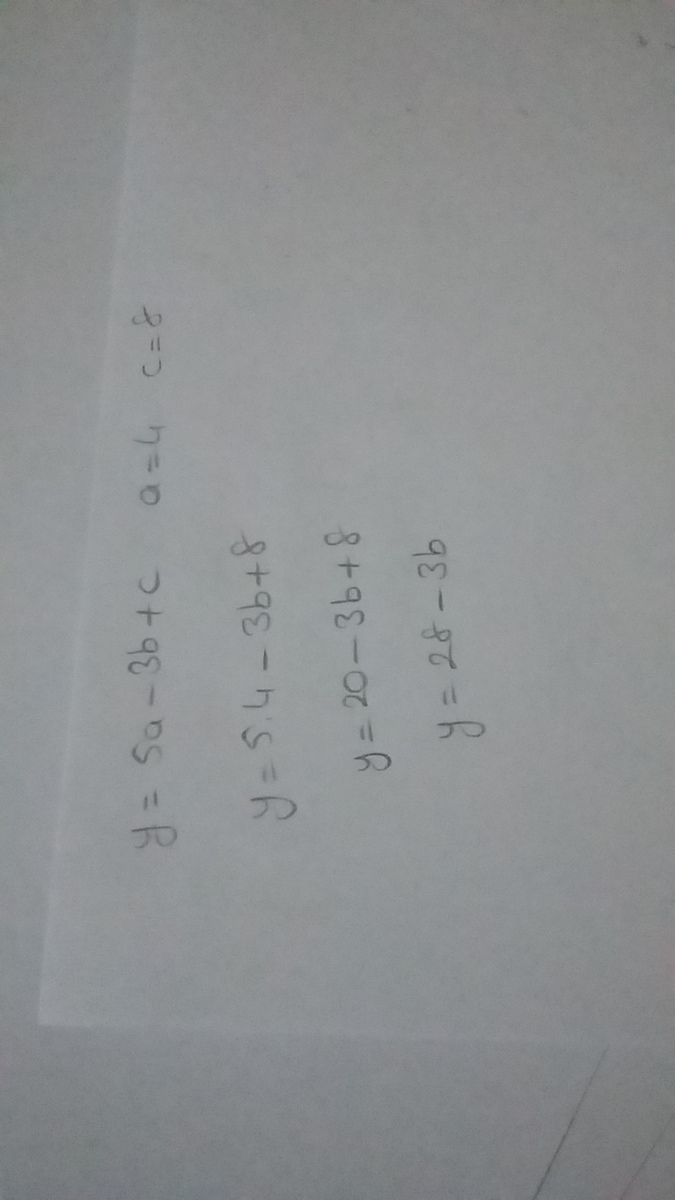 y = 5a - 3b + c a = 4 c = 8
y = 5.4 - 3b + 8
y = 20 - 3b + 8
y = 28 - 3b